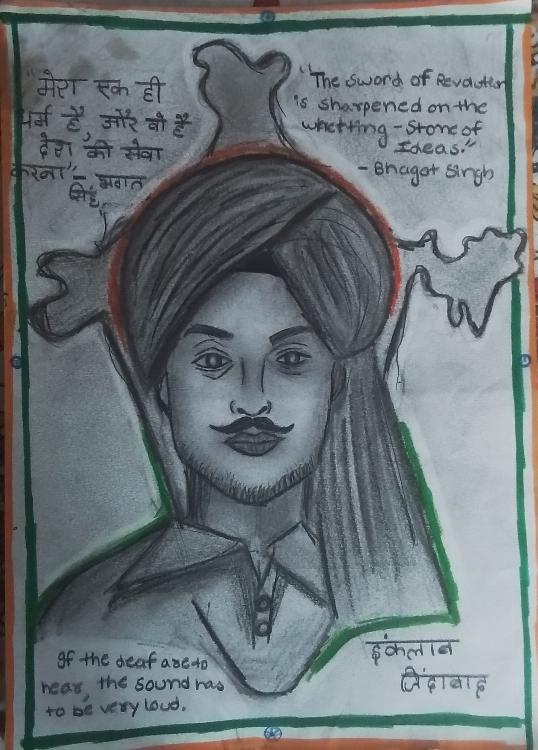 "मेरा एक ही
धर्म है, और वो है
देश की सेवा
करना" - भगत
सिंह
"The Sword of Revolution
is sharpened on the
whetting - Stone of
Ideas."
- Bhagat Singh
If the deaf are to
hear, the sound has
to be very loud.
इंकलाब
जिंदाबाद